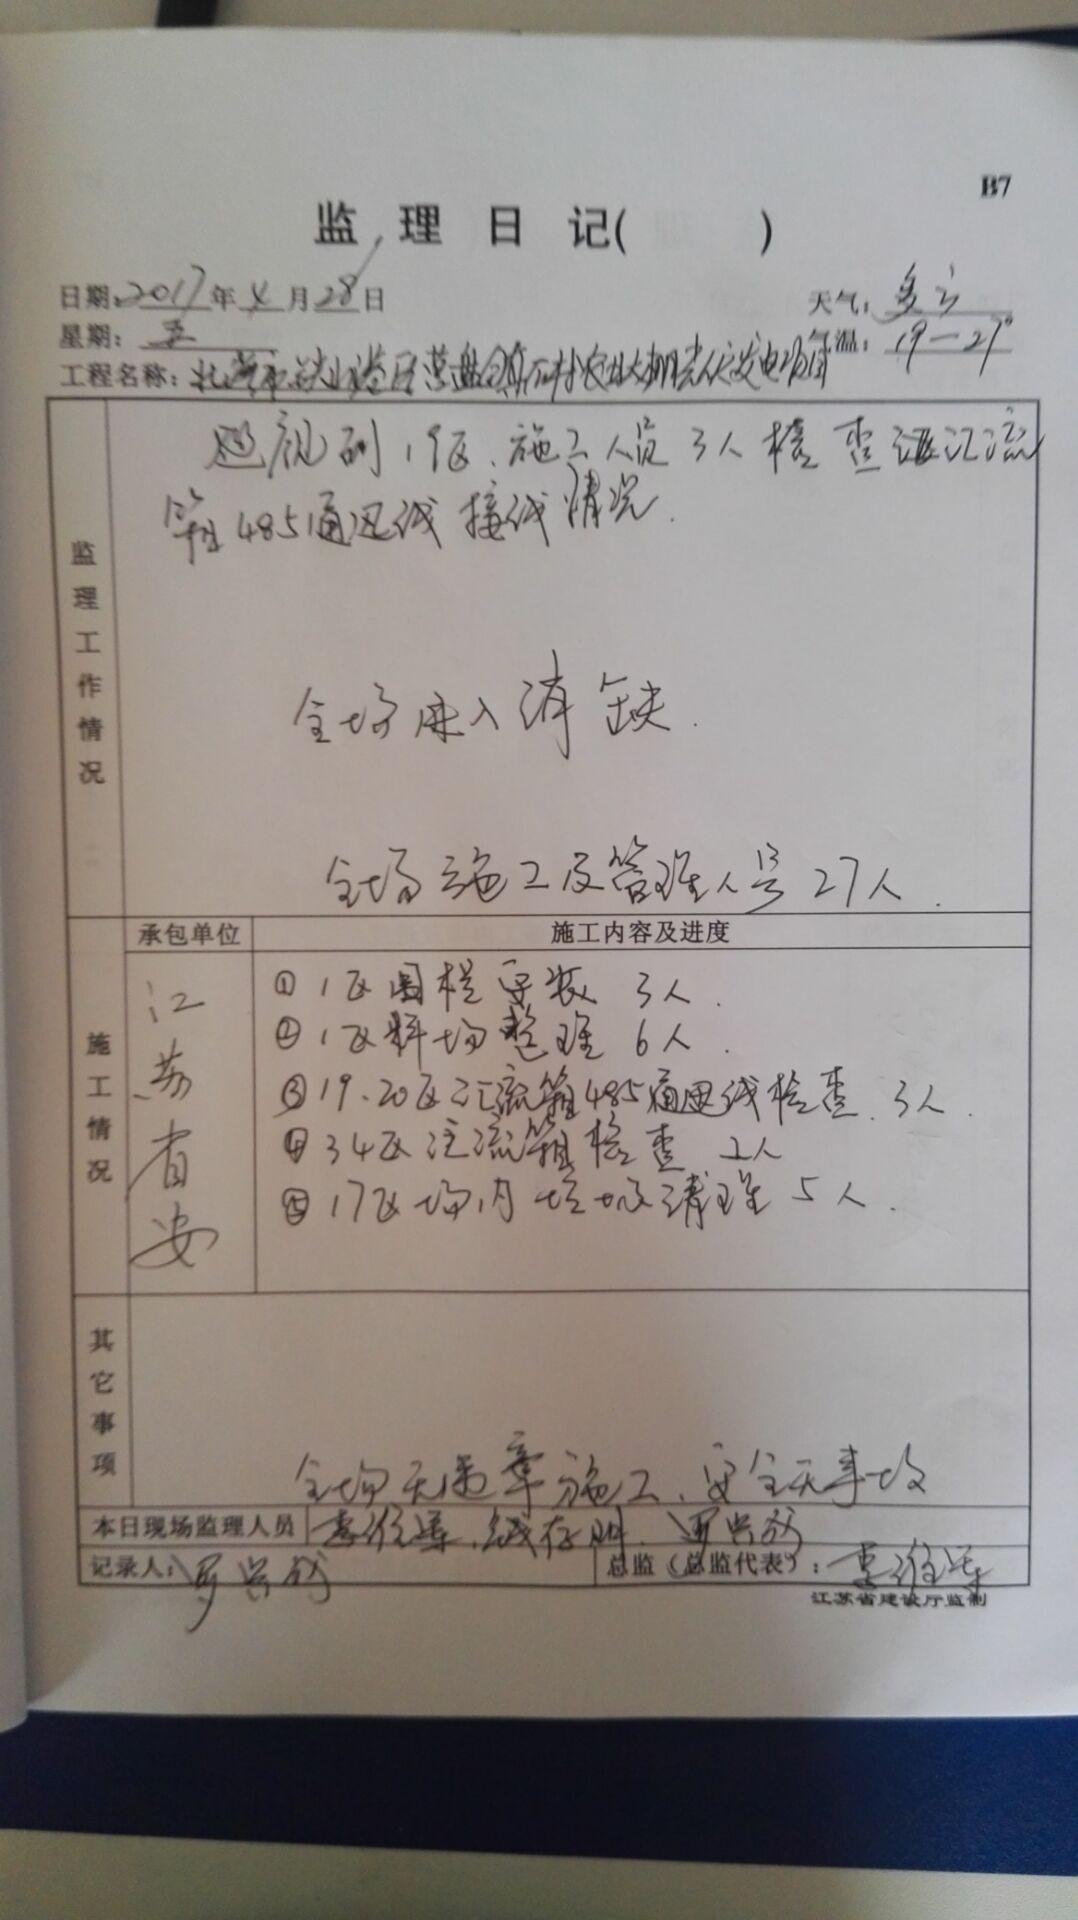 B7
监 理 日 记(　　)
日期:2017年4月28日
天气: 多云
星期: 五
气温: 19-27°
工程名称: 北海市铁山港区营盘镇 村农业大棚光伏发电项目
巡视到19区、施工人员3人检查汇流
箱485通迅线接线情况.
监理工作情况
全场进入消缺.
全场施工及管理人员27人.
承包单位
施工内容及进度
施工情况
江苏省安
①1区围栏安装 3人.
②1区料场整理 6人.
③19.20区汇流箱485通迅线检查.3人.
④34区汇流箱检查 2人
⑤17区场内垃圾清理 5人.
其它事项
全场无违章施工、安全无事故
本日现场监理人员 李 、 存明、罗兴
记录人: 罗兴
总监（总监代表）: 李
江苏省建设厅监制